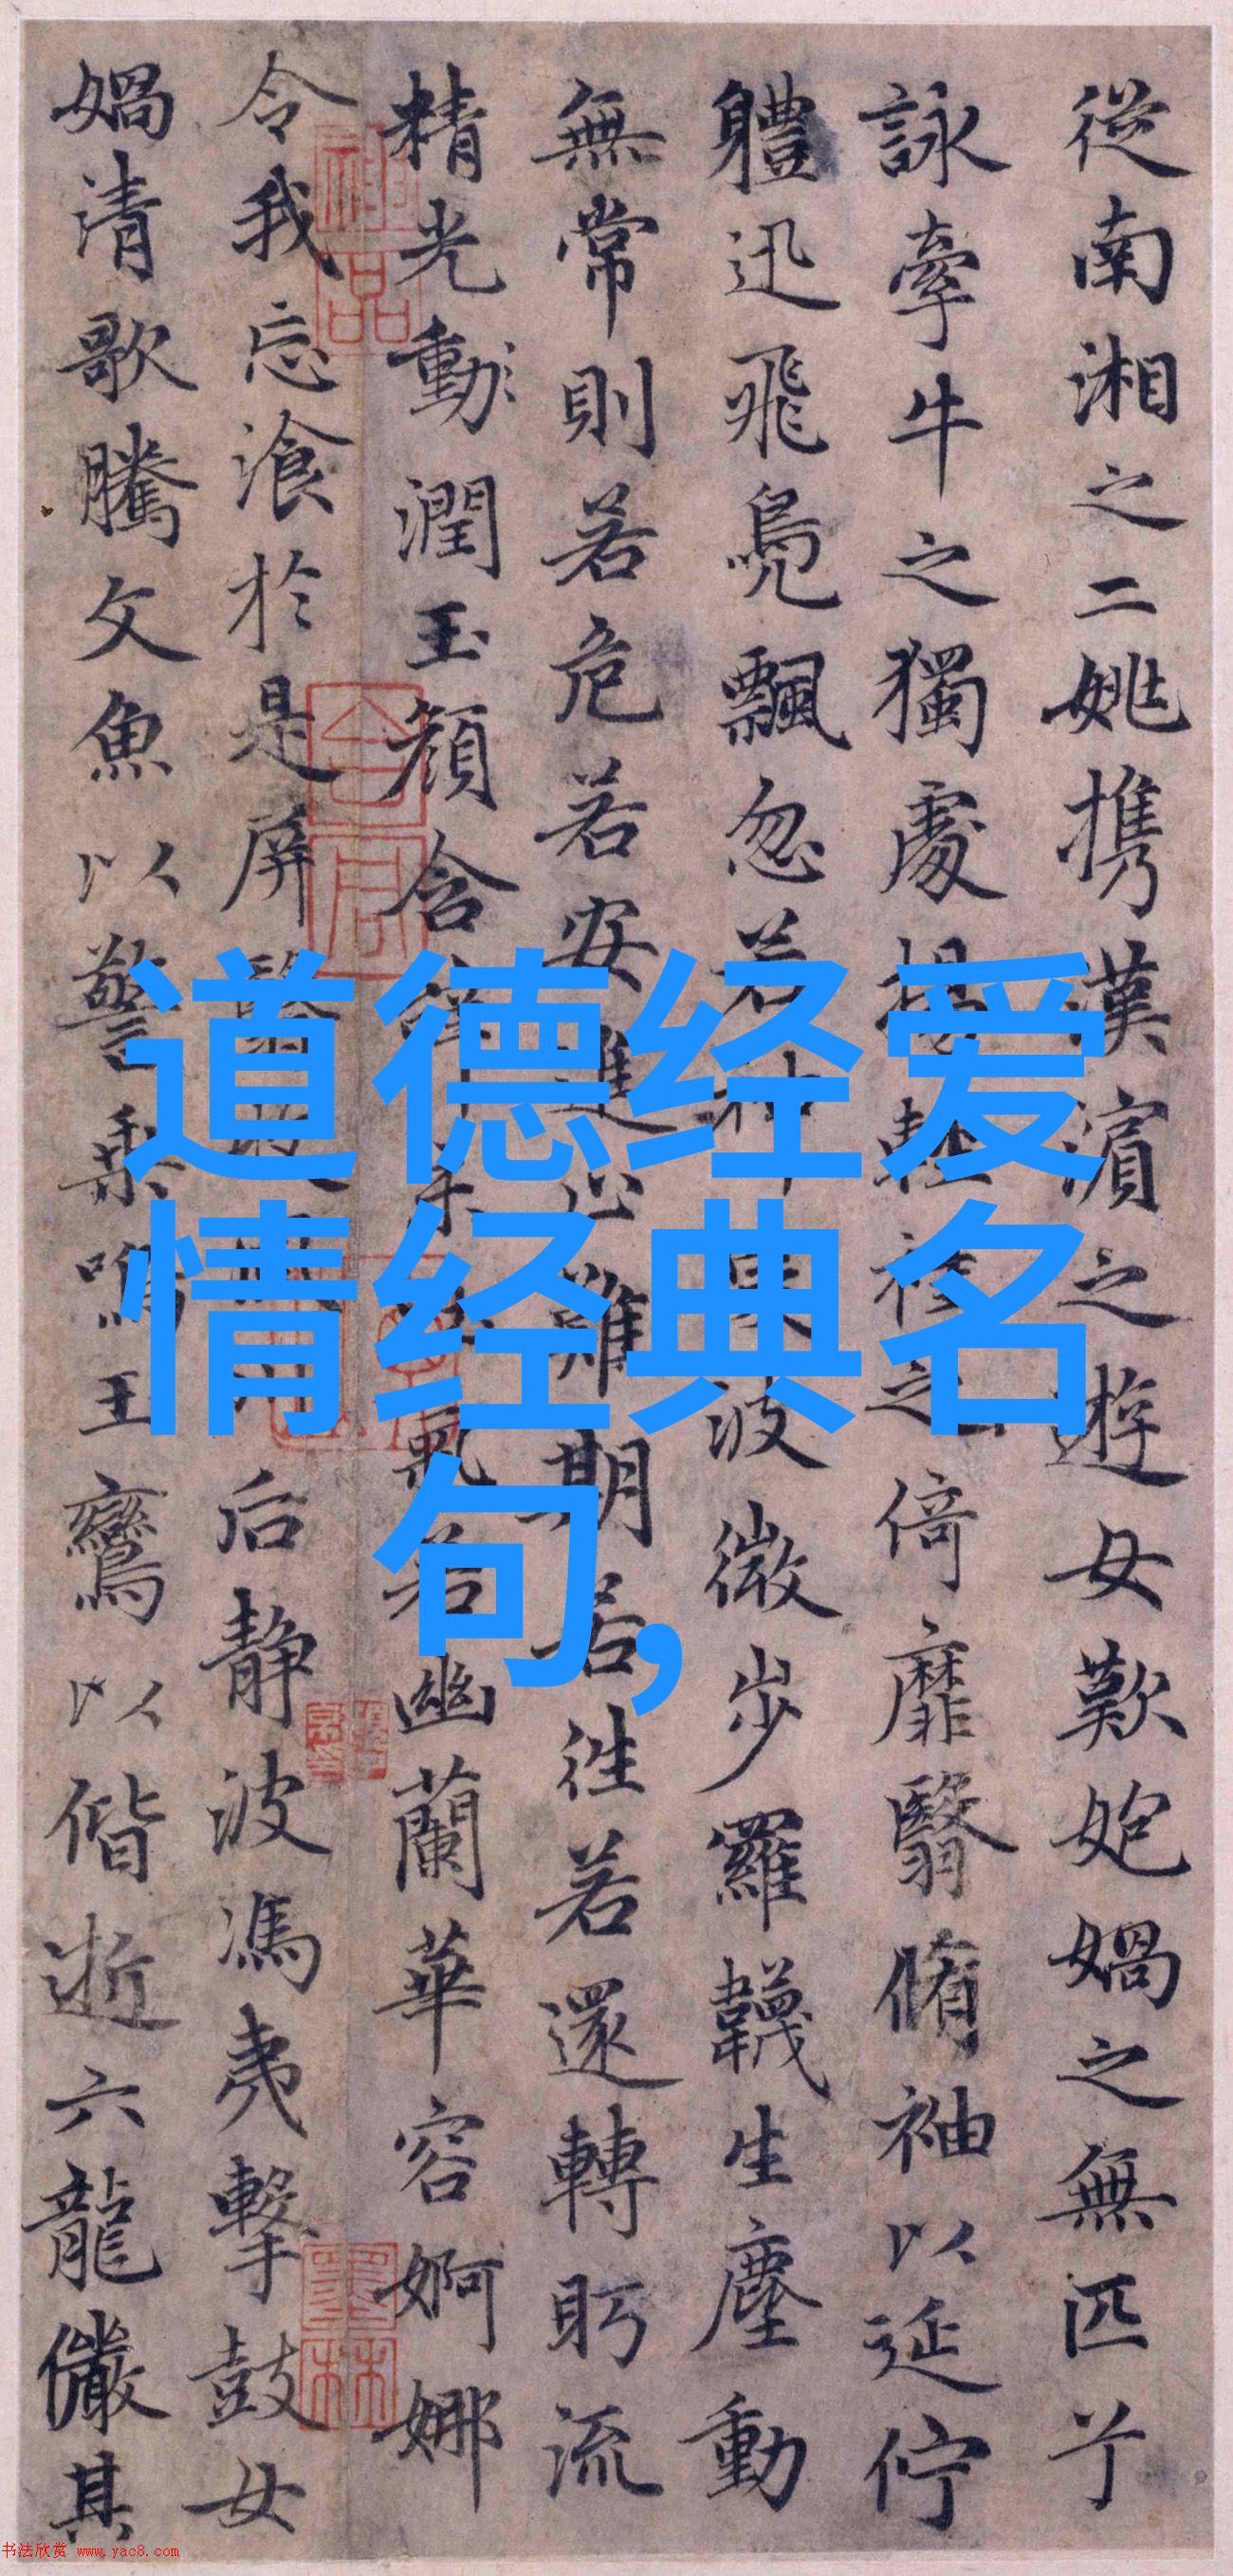 道德经爱
情经典名
句,
從南湘之二姚携漢濱之遊女歎媧之無匹兮
詠牽牛之獨處揚輕袿之倚靡翳脩袖以延佇
軆迅飛鳧飄忽若神波微步羅韈生塵動
無常則若危若安進止難期若往若還轉眄流
精光動潤玉顏含氣若幽蘭華容婀娜
令我忘飡於是屏翳后静波馮夷擊鼓女
媧清歌騰文魚以警乘鳴玉鸞以偕逝六龍儼其
神品
墨林
书法欣赏 www.yac8.com